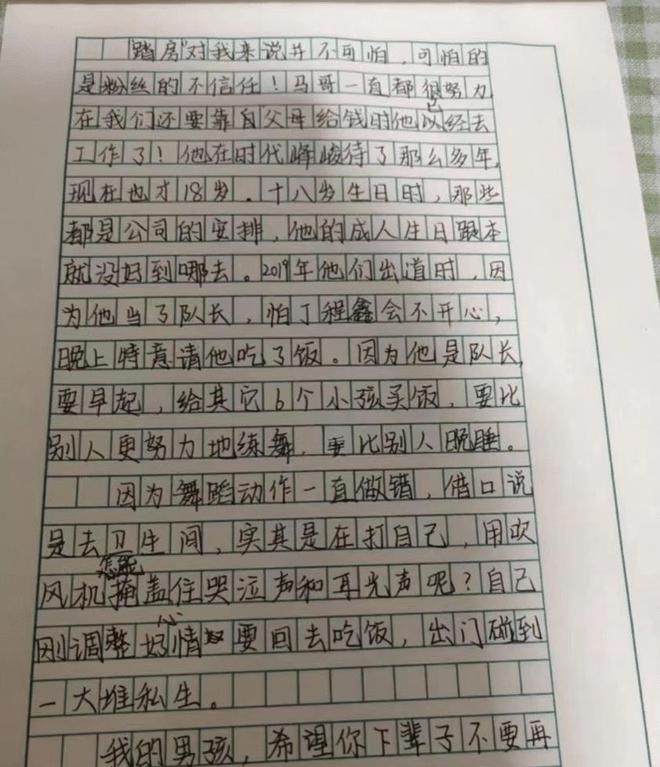 "踏房"对我来说并不可怕，可怕的
是粉丝的不信任！马哥一直都很努力
在我们还要靠自父母给钱时他已经去
工作了！他在时代峰峻待了那么多年,
现在也才18岁。十八岁生日时，那些
都是公司的安排，他的成人生日跟本
就没好到哪去。2019年他们出道时，因
为他当了队长，怕丁程鑫会不开心，
晚上特意请他吃了饭。因为他是队长,
要早起，给其它6个小孩买饭，要比
别人更努力地练舞，要比别人晚睡。
因为舞蹈动作一直做错，借口说
是去卫生间，实其是在打自己，用吹
风机怎能掩盖住哭泣声和耳光声呢？自己
刚调整好心情要回去吃饭，出门碰到
一大堆私生。
我的男孩，希望你下辈子不要再